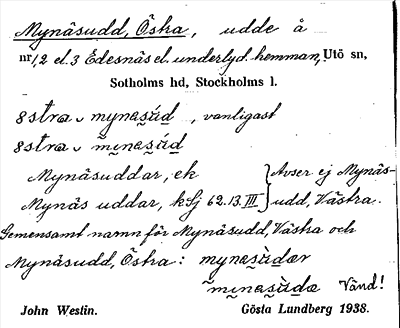 Mynäsudd, Östra, udde å
nr 1, 2 el. 3 Edesnäs el. underlyd. hemman, Utö sn,
Sotholms hd, Stockholms l.
östra ˬ mynesu̇d , vanligast
östra ˬ
Mynäsuddar, ek } Avser ej Mynäs-
Mynäs uddar, kSj 62.13.III } udd, Västra.
Gemensamt namn för Mynäsudd, Västra och
Mynäsudd, Östra: mynesu̇dær
Vänd!
John Westin. Gösta Lundberg 1938.